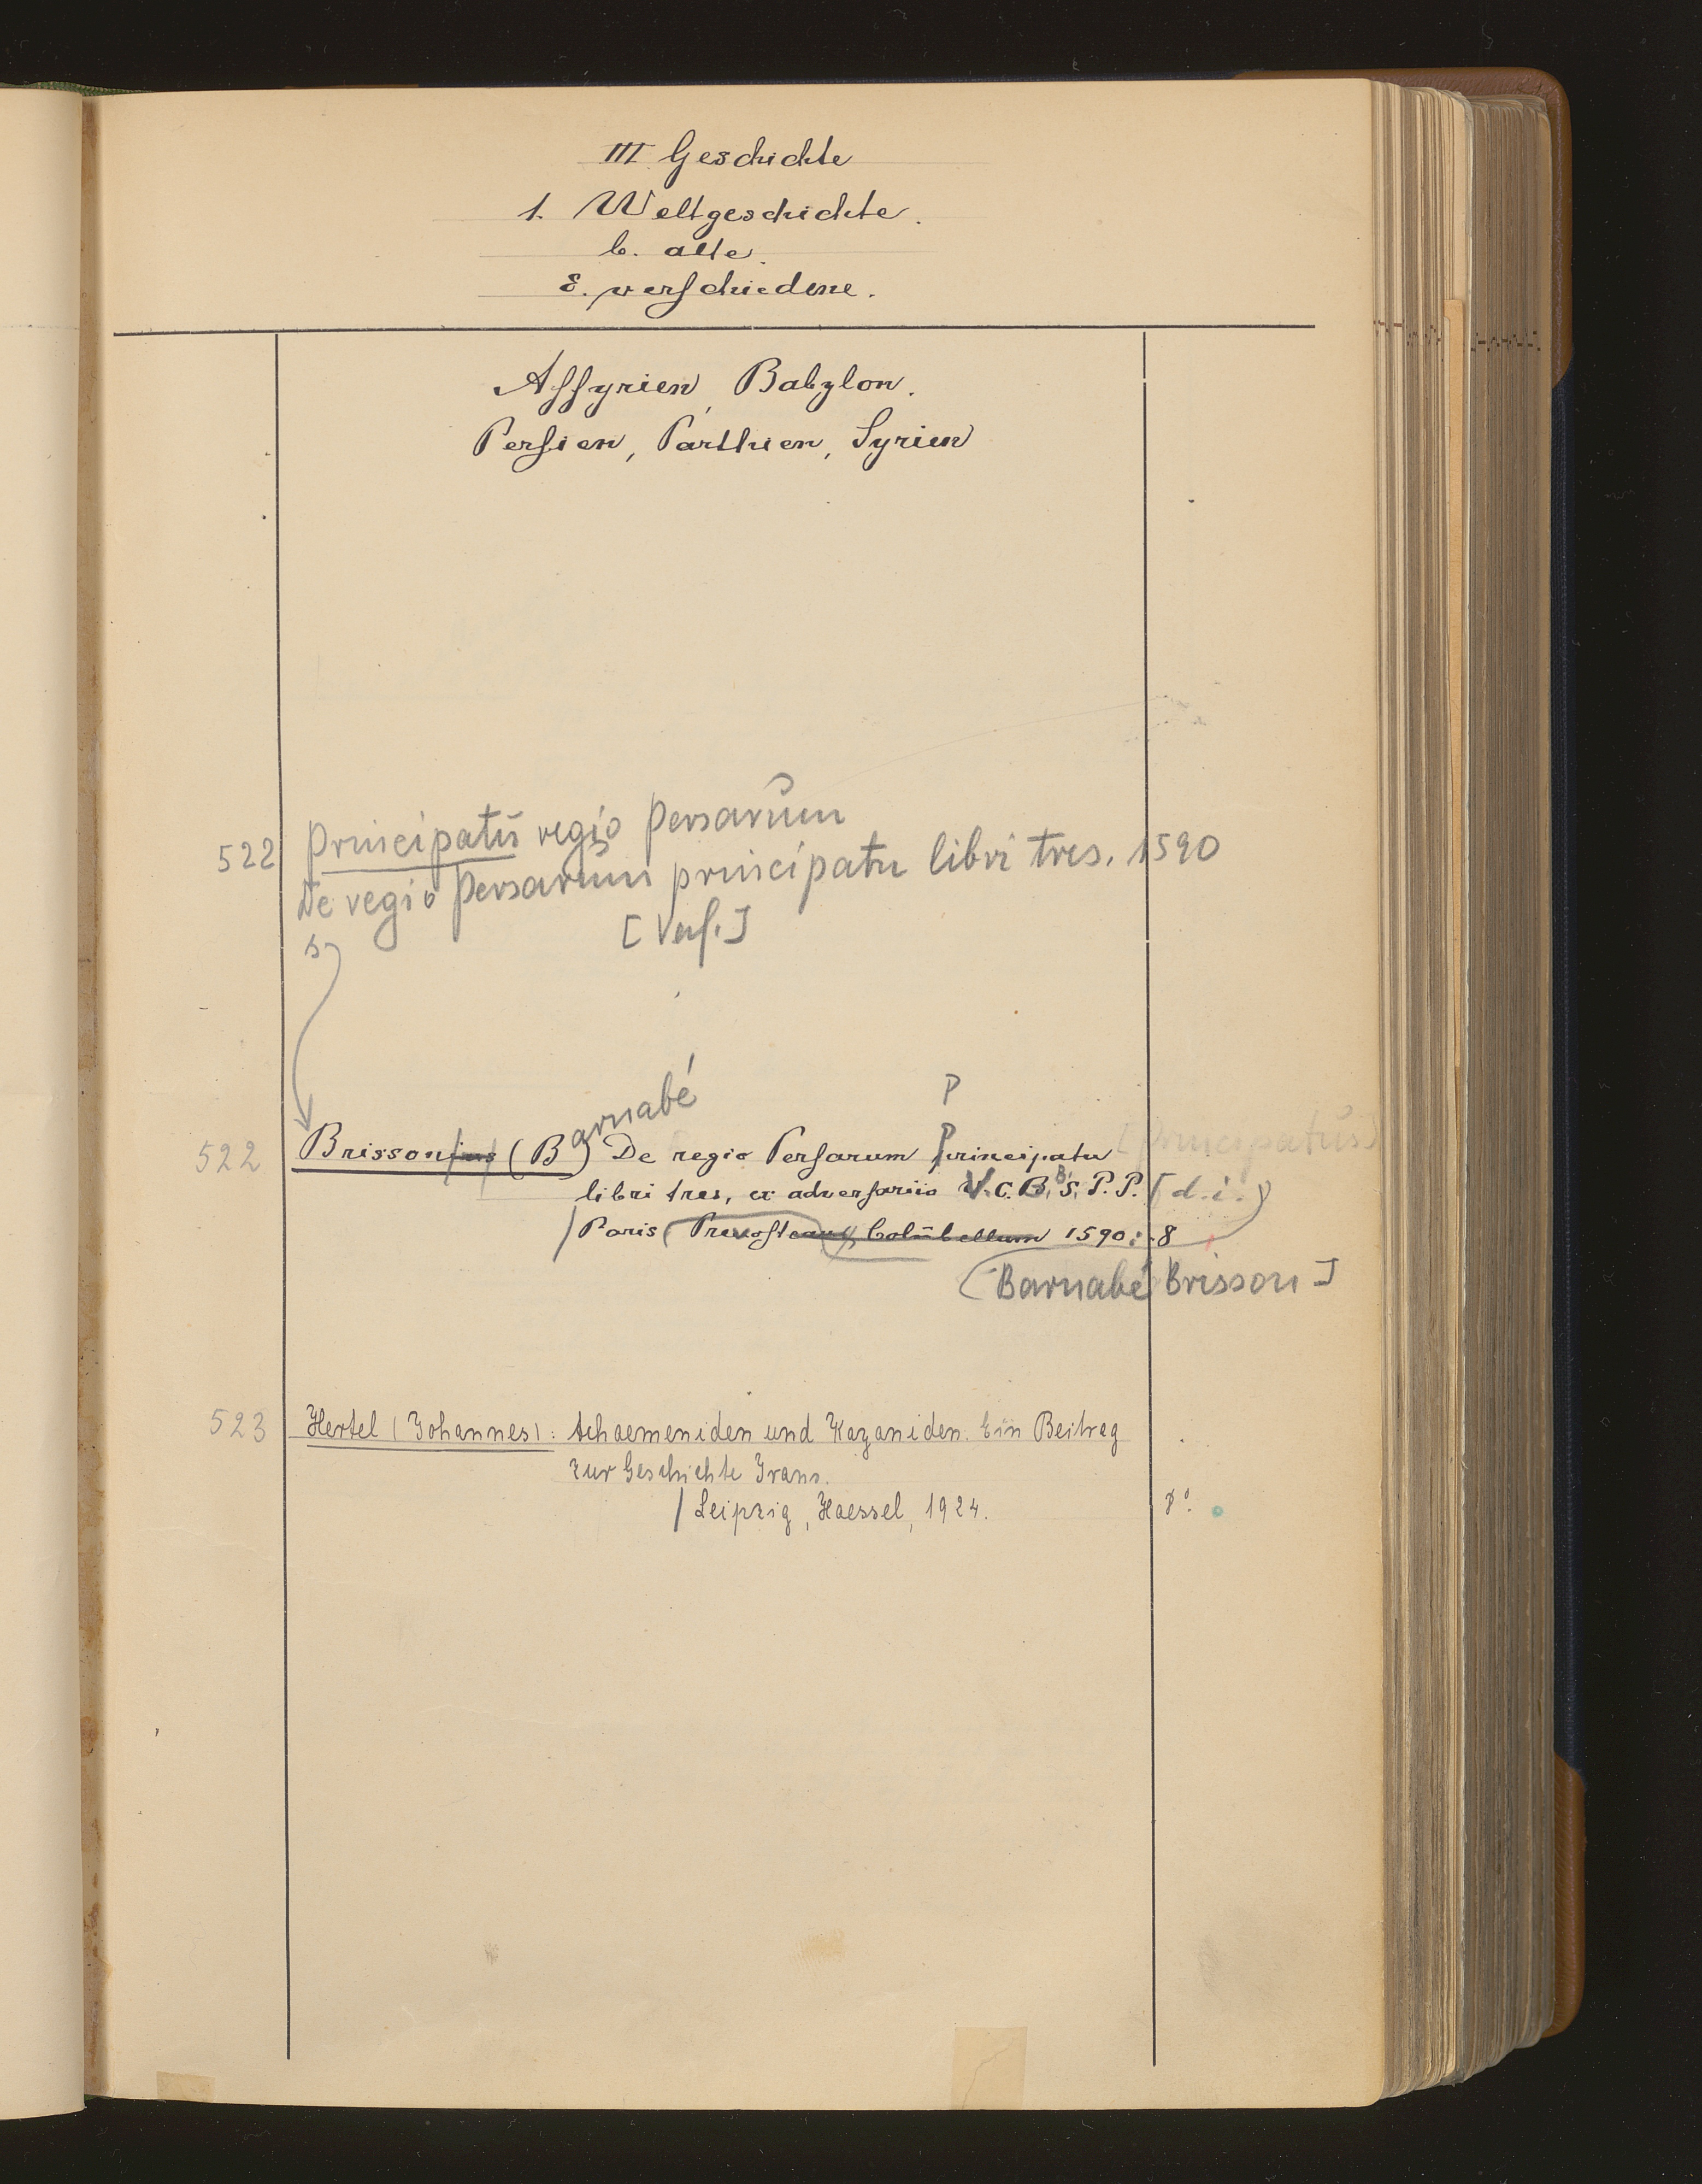 III Geschichte
1. Weltgeschichte.
b. alte.
ε. verschiedene.
Assyrien, Babylon.
Persien, Parthien, Syrien
522 Principatū regio Persarūm
De regio Persarum principatu libri tres. 1590
[Verf.]
s.
arnabé
P
522 Brissonius (B) De regio Persarum Principatu [Principatūs]
libri tres, ex adversariis V. C. B. B. S. P. P. [d. i.
/ Paris (Prevosteau), Colūbellum 1590. 8
Barnabé Brisson]
523 Hertel (Johannes): Achaemeniden und Kayaniden. Ein Beitrag
zur Geschichte Irans.
/ Leipzig, Haessel, 1924. 8°.